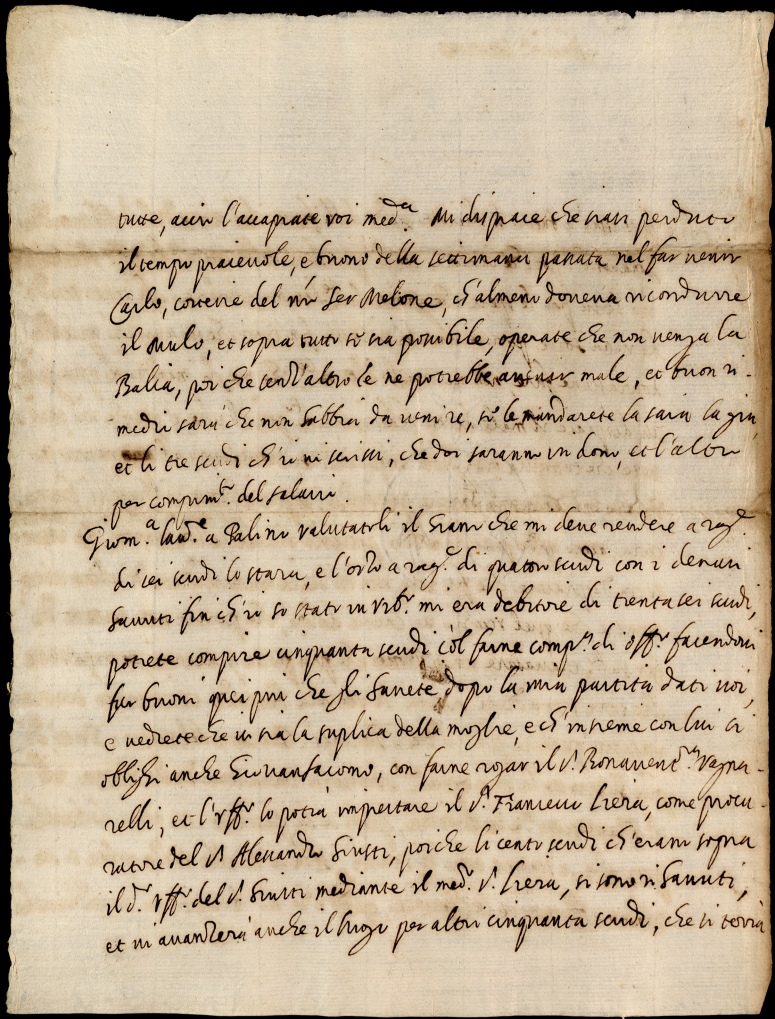 tutte, acciò l'accapiate voi med.ª Mi dispiace che siasi perduto
il tempo piacevole, e buono della settimana passata nel far venir
Carlo, corteie del nr̃o Ser Melone, ch'almeno doveva ricondurre
il Mulo, et sopra tutto se sia possibile, operate che non venga la
Balia, poi che senz'altro le ne potrebbe causar male, et buon ri-
medio sarà che non habbia da venire, se le mandarete la saia la giù,
et li tre scudi ch'io vi scrissi, che doi saranno in dono, et l'altro
per compim.to del salario.
Giom.ª laud.e a Palino valutatoli il Grano che mi deve rendere a rag.e
di sei scudi lo staro, e l'orzo a rag.e di quattro scudi con i denari
havuti fin ch'io so stato in Urb.º mi era debitore di trenta sei scudi,
potrete compire cinquanta scudi col farne comp.ª di off.º facendovi
far buoni quei più che gli havete dopo la mia partita dati voi,
e vedrete che vi sia la suplica della moglie, e ch'insieme con lui si
oblighi anche Giovan Jacomo, con farne rogar il s.r Bonavent.ra Vagna-
relli, et l'uff.º lo potrà imprestare il s.r Francesco Liera, come procu-
ratore del s.r Alessandro Giusti, poiche li cento scudi ch'erano sopra
il d.º uff.º del s.r Giusti mediante il med.º s.r Liera, si sono rihavuti,
et vi avanzerà anche il luogo per altri cinquanta scudi, che si terrà